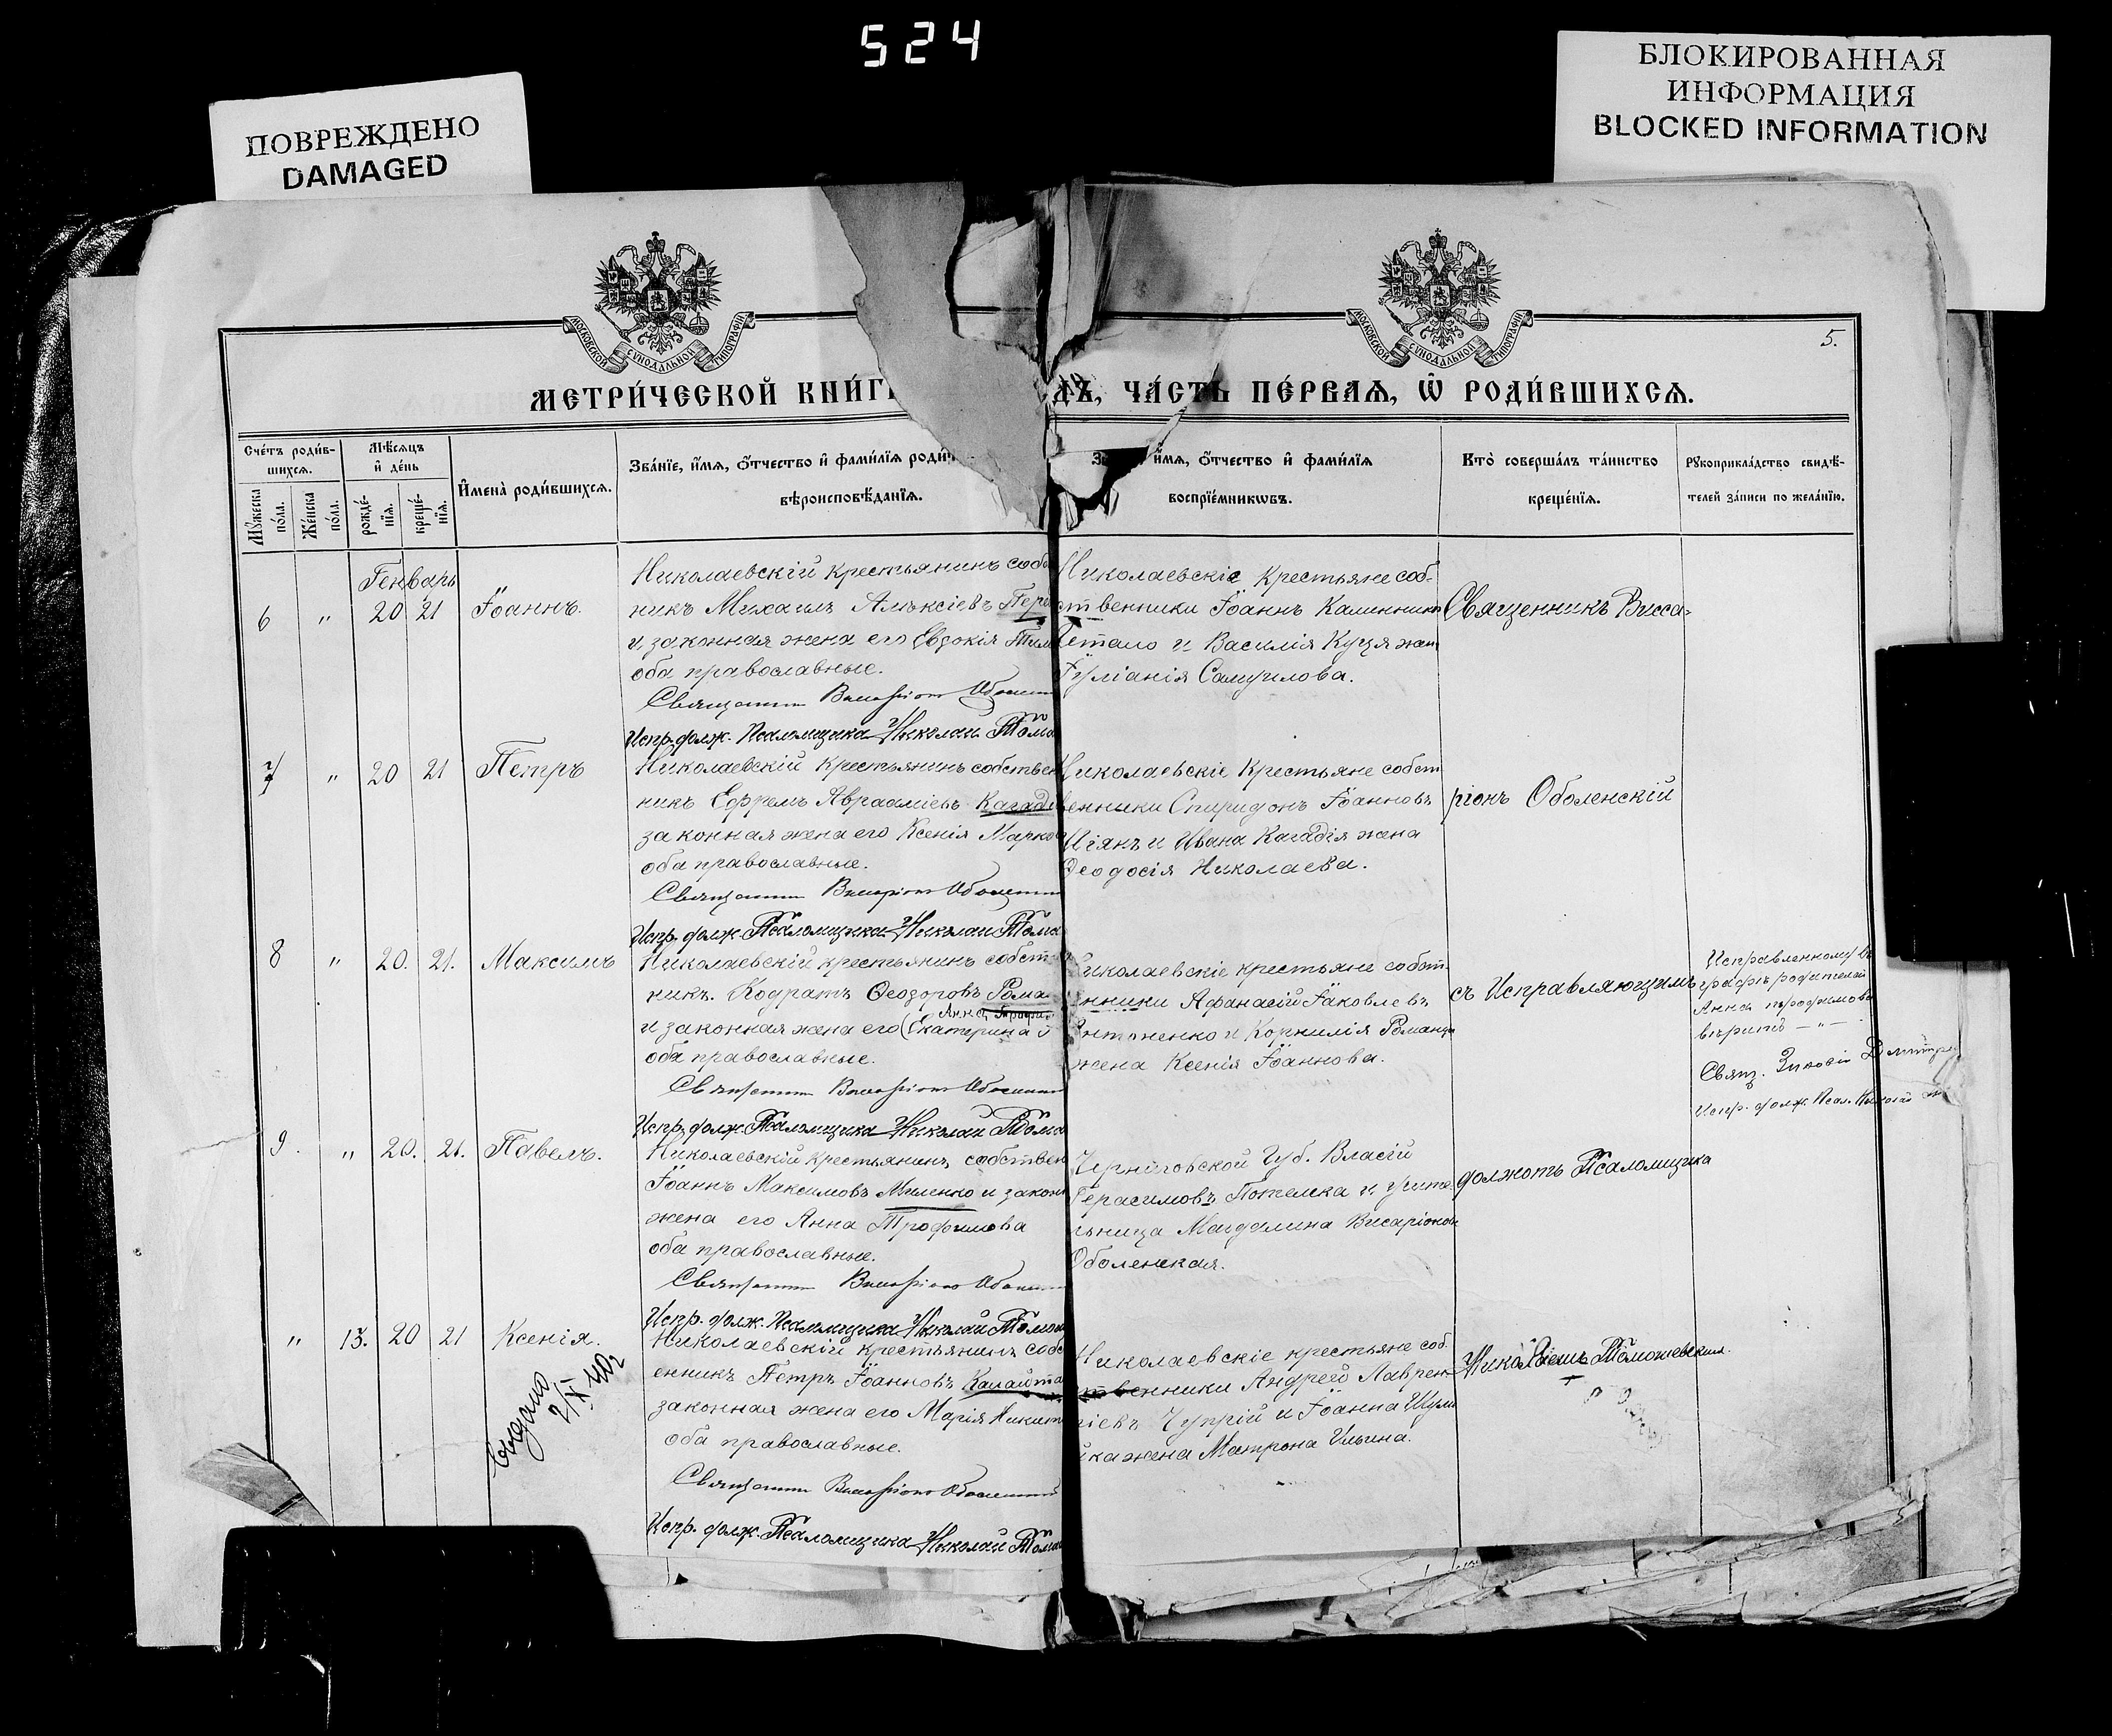 524
ПОВРЕЖДЕНО
DAMAGED
БЛОКИРОВАННАЯ
ИНФОРМАЦИЯ
BLOCKED INFORMATION
МОСКОВСКОЙ СѴНОДАЛЬНОЙ ТИПОГРАФІИ
МОСКОВСКОЙ СѴНОДАЛЬНОЙ ТИПОГРАФІИ
5.
МЕТРИ́ЧЕСКОЙ КНИ́ГИ
ЧА́СТЬ ПЕ́РВАѦ, Ѡ҆ РОДИ́ВШИХСѦ.
Сче́тъ роди́в-
шихсѧ.
Мꙋ́жеска по́ла.
Же́нска по́ла.
Мѣ́сѧцъ и҆ де́нь
рожде́-
нїѧ.
креще́-
нїѧ.
И҆мена̀ роди́вшихсѧ.
Зва́нїе, и҆́мѧ, ѻ҆́тчество и҆ фами́лїѧ
вѣроисповѣ́данїѧ.
и҆́мѧ, ѻ҆́тчество и҆ фами́лїѧ
воспрїе́мникѡвъ.
Кто̀ соверша́лъ та́инство
креще́нїѧ.
Рꙋкоприкла́дство свидѣ́-
телей за́писи по жела́нїю.
Генварь
6 " 20 21 Іоаннъ.
Николаевскій крестьянинъ собс
никъ Михаилъ Алексіевъ
и законная жена его Евдокія
оба православные.
Священникъ Виссаріонъ
Испр. долж. Псаломщика Николай
Николаевскіе крестьяне соб-
ственники Іоаннъ Калинник
и Василія Куця жен
Іуліанія Самуилова.
Священникъ Висса-
7 " 20 21 Петръ
Николаевскій крестьянинъ собствен
никъ Ефремъ Аврааміевъ
законная жена его Ксенія Марко
оба православные.
Священникъ Виссаріонъ
Испр. долж. Псаломщика Николай
Николаевскіе крестьяне собст
венники Спиридонъ Іоанновъ
и Ивана Кагадія жена
Ѳеодосія Николаева.
ріонъ Оболенскій
8 " 20. 21. Максимъ
Николаевскій крестьянинъ собст
никъ. Кодратъ Ѳеодоровъ Рома
Анна
и законная жена его (Екатерина
оба православные.
Священникъ Виссаріонъ
Испр. долж. Псаломщика Николай
Николаевскіе крестьяне собст-
Афанасій Іаковлевъ
и Корнилія Романца
жена Ксенія Іоаннова.
съ Исправляющимъ
Исправленному въ
графѣ родителей
Анна
Свящ.
Испр. долж. Псал. Николай
9. " 20. 21. Павелъ.
Николаевскій крестьянинъ собствен
Іоаннъ Максимовъ Миленко и закон
жена его Анна Трофимова
оба православные.
Священникъ Виссаріонъ
Испр. долж. Псаломщика Николай
Черниговской Губ. Власій
Герасимовъ и учите-
льница Магдалина Висаріонов
Оболенская.
должность Псаломщика
" 13. 20 21 Ксенія.
Видано
Николаевскій крестьянинъ собс
енникъ Петръ Іоанновъ
законная жена его Марія Никит
оба православные.
Священникъ Виссаріонъ Оболенскій
Испр. долж. Псаломщика Николай
Николаевскіе крестьяне соб
ственники Андрей Лаврен-
тіевъ Чупрій и Іоанна Шули
йка жена Матрона Ильина.